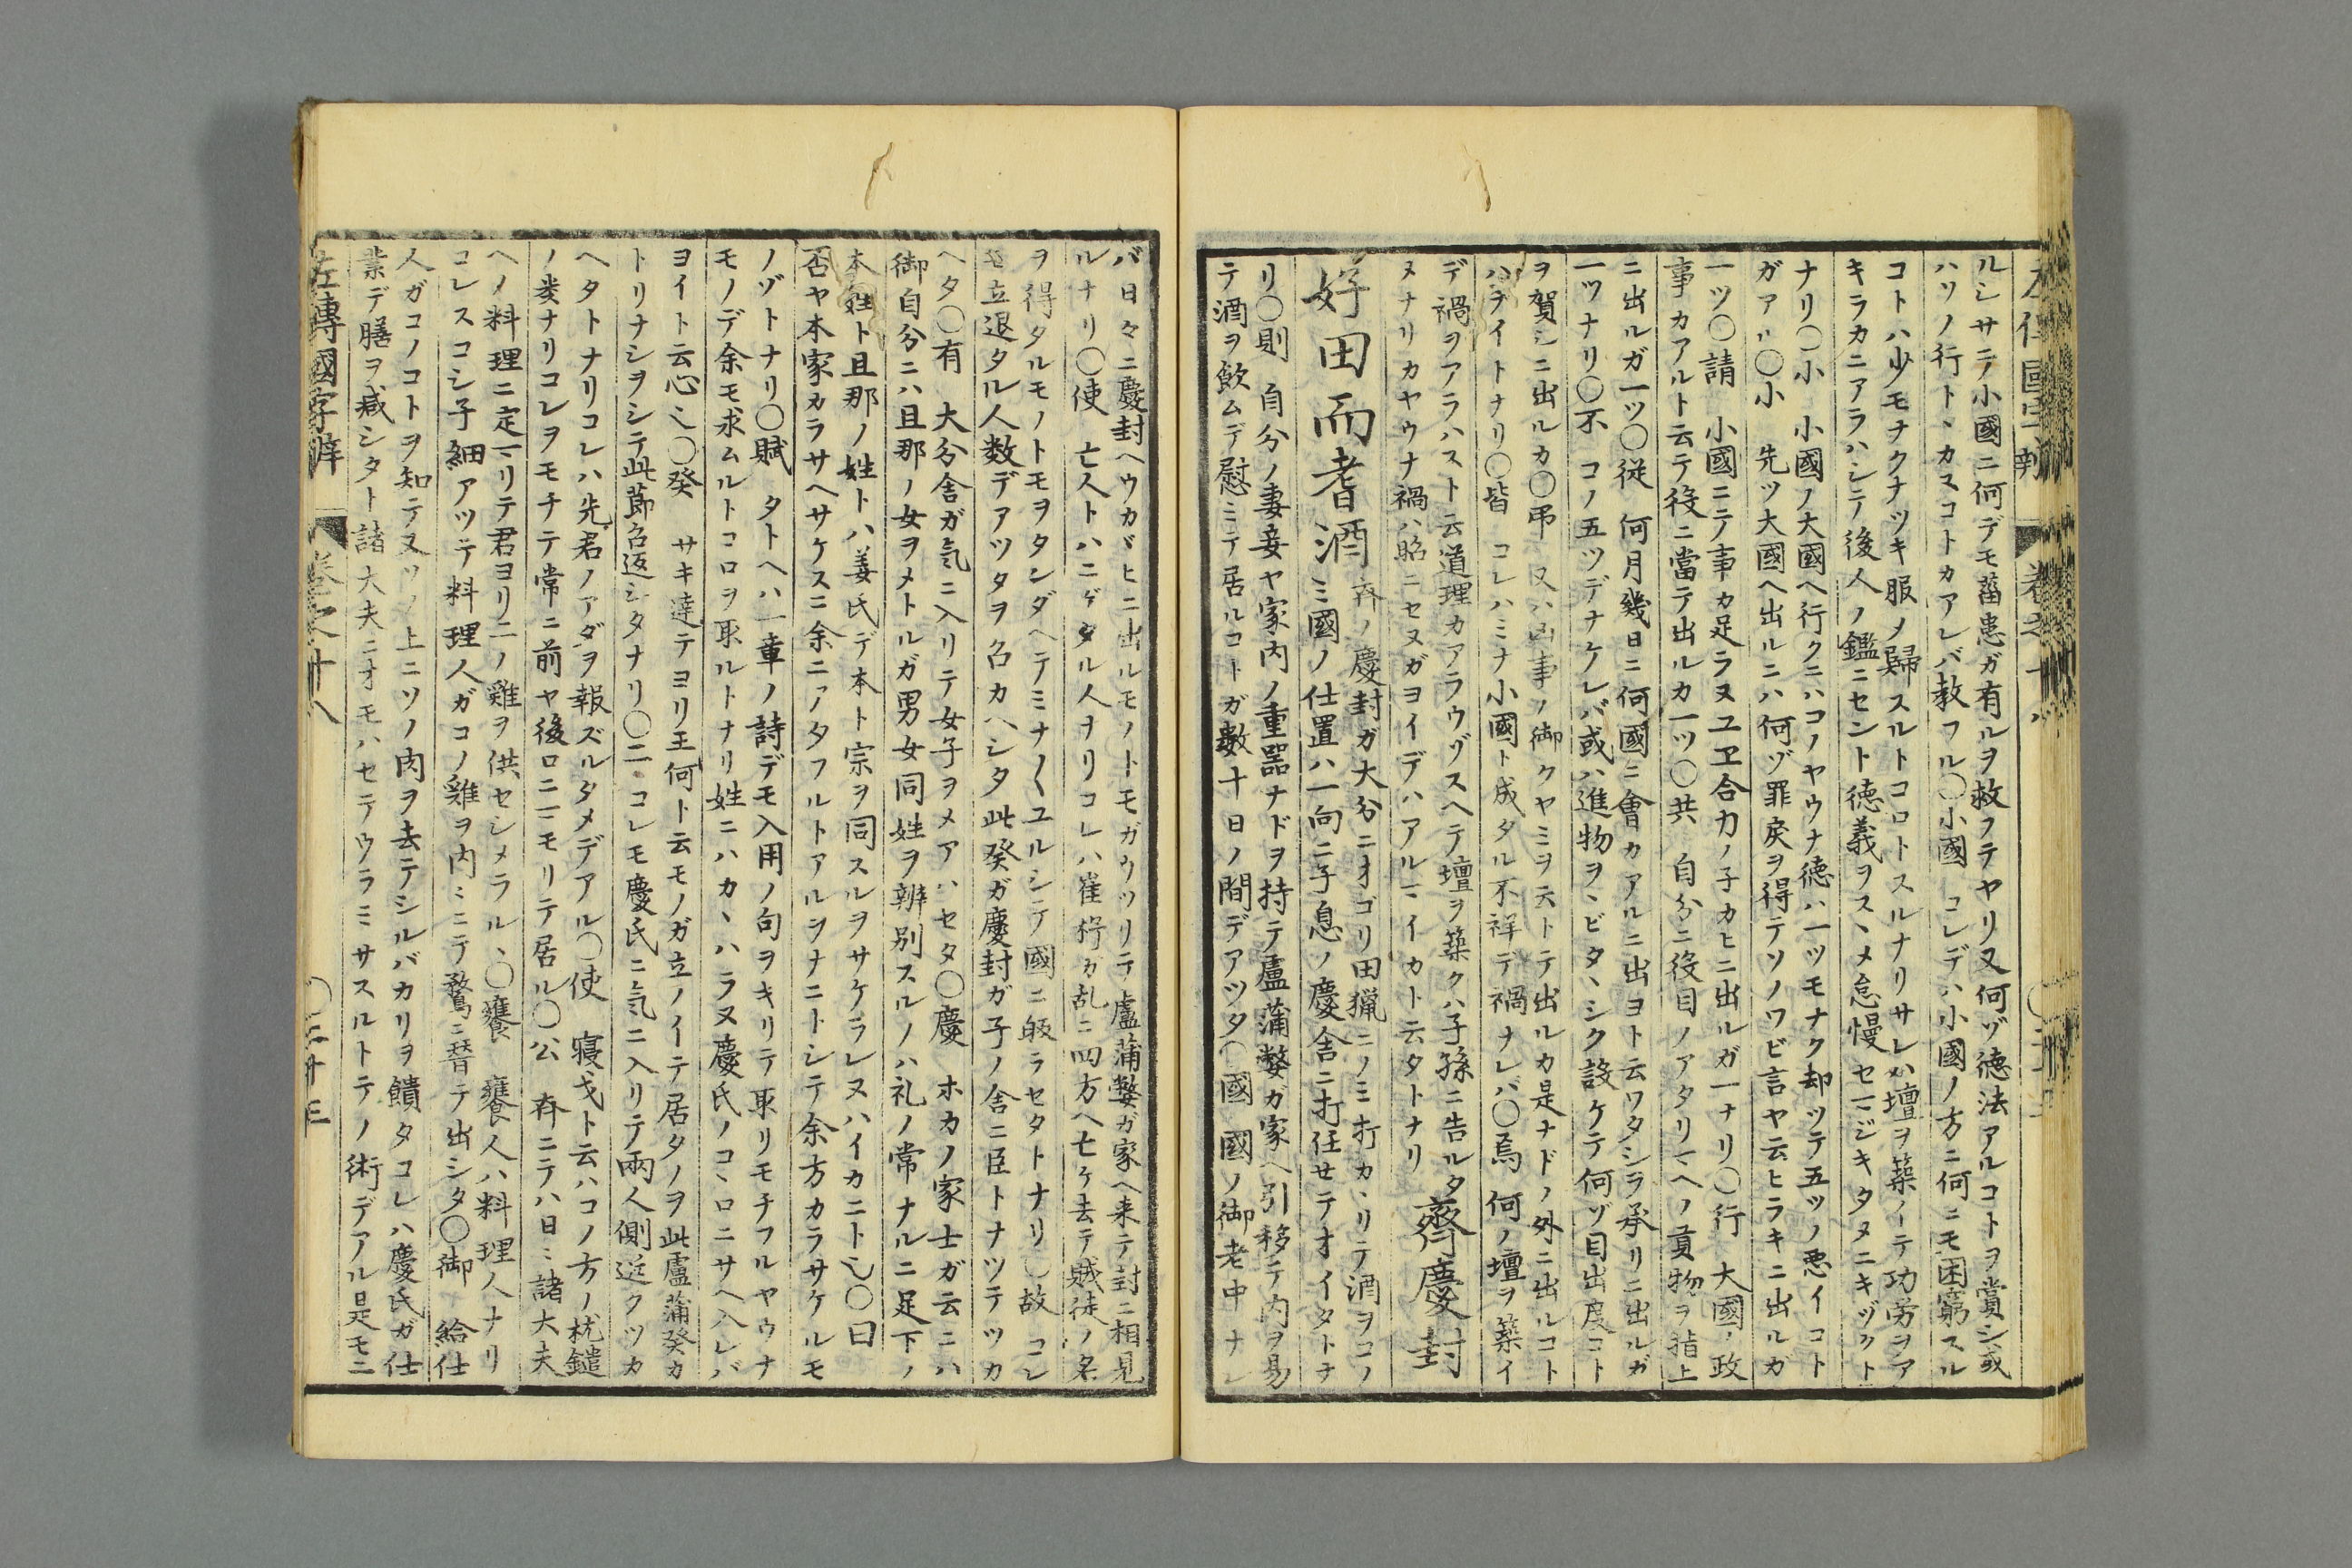 ルシサニテ小國ニ何デモ菑患ガ有ルヲ救フテヤリ又何ゾ徳法アルコトヲ賞シ或
ハソノ行トヽカヌコトカアレバ教フル〇小國 コレデハ小國ノ方ニ何ニモ困窮スル
コトハ少モナクナツキ服ノ歸スルトコロトスルナリサレハ壇ヲ築ノテ功劳ヲア
キラカニアラハシテ後人ノ鑑ニセント徳義ヲスヽメ怠慢セマジキタヌニキヅクト
ナリ〇小 小國ノ大國ヘ行クニハコノヤウナ徳ハ一ツモナク却ツテ五ツノ悪イコト
ガアル〇小 先ツ大國ヘ出ルニハ何ゾ罪戾ヲ得テソノワビ言ヤ云ヒラキニ出ルガ
一ツ〇請 小國ニテ事カ足ラヌユヱ合力ノ子カヒニ出ルガ一ナリ〇行 大國ノ政
事カアルト云テ役ニ當テ出ルカ一ツ〇共 自分ニ役目ノアタリマヘノ貢物ヲ指上
ニ出ルガ一ツ〇従 何月幾日ニ何國ニ會カアルニ出ヨト云ワタシヲ承リニ出ルガ
一ツナリ〇不 コノ五ツデナケレバ或ハ進物ヲヽビタヽシク設ケテ何ゾ目出度コト
ヲ賀シニ出ルカ〇弔 又ハ凶事ノ御クヤミヲ云トテ出ルカ是ナドノ外ニ出ルコト
ハナイトナリ〇皆 コレハミナ小國ト成タル不祥デ禍ナレバ〇焉 何ノ壇ヲ築イ
デ禍ヲアラハスト云道理カアラウゾスヘテ壇ヲ築クハ子孫ニ告ルタ
ヌナリカヤウナ禍ハ昭ニセヌガヨイデハアルマイカト云タトナリ 齊慶封
好田而耆酒 斉ノ慶封ガ大分ニオゴリ田獵ニノミ打カヽリテ酒ヲコノ
ミ國ノ仕置ハ一向ニ子息ノ慶舎ニ打任せテオイタトナ
リ〇則 自分ノ妻妾ヤ家内ノ重器ナドヲ持テ盧蒲嫳ガ家ヘ引移テ内ヲ易
テ酒ヲ飲ムデ慰ミテ居ルコトガ數十日ノ間デアツタ〇國 國ノ御老中ナレ
バ日々ニ慶封ヘウカヾヒニ出ルモノトモガウツリテ盧蒲嫳ガ家ヘ来テ封ニ相見
ルナリ〇使 亡人トハニゲタル人ナリコレハ崔杼ガ乱ニ四方ヘ亡ケ去テ賊徒ノ名
ヲ得タルモノトモヲタンダヘテミナ〱ユルシテ國ニ皈ラセタトナリ〇故 コレ
立退タル人数デアツタヲ召カヘシタ此癸ガ慶封ガ子ノ舎ニ臣トナツテツカ
ヘタ〇有 大分舎ガ気ニ入リテ女子ヲメアハセタ〇慶 ホカノ家士ガ云ニハ
御自分ニハ且那ノ女ヲメトルガ男女同姓ヲ辨別スルノハ礼ノ常ナルニ足下ノ
本姓ト且那ノ姓トハ姜氏デ本ト宗ヲ同スルヲサケラレヌハイカニト也〇曰
否ヤ本家カラサヘサケスニ余ニアタフルトアルヲナニトシテ余方カラサケルモ
ノゾトナリ〇賦 タトヘハ一章ノ詩デモ入用ノ句ヲキリテ取リモチフルヤウナ
モノデ余モ求ムルトコロヲ取ルトナリ姓ニハカヽハラヌ慶氏ノコヽロニサヘ入レバ
ヨイト云心也〇癸 サキ達テヨリ王何ト云モノガ立ノイテ居タノヲ此盧蒲癸カ
トリナシヲシテ此節召返シタナリ〇二 コレモ慶氏ニ気ニ入リテ兩人側近クツカ
ヘタトナリコレハ先君ノアダヲ報ズルタメデアル〇使 寝戈ト云ハコノ方ノ枕鑓
ノ类ナリコレヲモチテ常ニ前ヤ後ロニマモリテ居ル〇公 斉ニテハ日ミ諸大夫
ヘノ料理ニ定マリテ君ヨリ二ノ雞ヲ供セシメラルヽ〇饔 饔人ハ料理人ナリ
コレスコシ子細アツテ料理人ガコノ雞ヲ内ミニテ鶩ニ替テ出シタ〇御 給仕
人ガコノコトヲ知テ又ソノ上ニソノ肉ヲ去テシルバカリヲ饋タコレハ慶氏ガ仕
業デ膳ヲ減シタト諸大夫ニオモハセテウラミサスルトテノ術デアル是モ二
左傳國字辯 卷之廿八 〇三十三